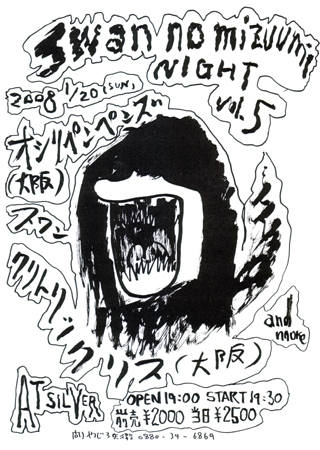 swan no mizuumi
NIGHT
vol.5
2008 1/20 (SUN)
オシリペンペンズ
(大阪)
スワン
クリトリック リス (大阪)
and
more
AT SILVER
OPEN 19:00 START 19:30
前売 ¥2000 当日 ¥2500
0880-39-6869